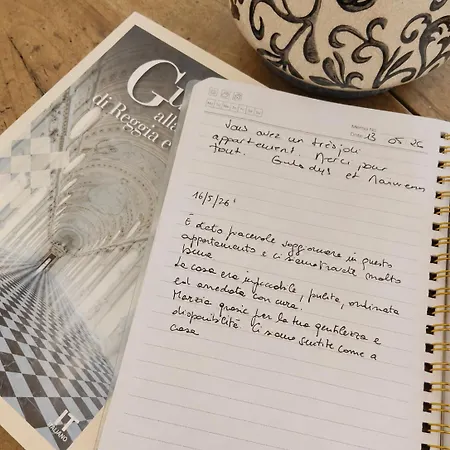 Gui
alla
di Reggio e
IT
ITALIANO
Memo No.
Date 13 05 26
Vous avez un très joli
appartement. Merci pour
tout. et
16/5/26
È stato piacevole soggiornare in questo
appartamento e ci siamo trovate molto
bene
La casa era impeccabile, pulita, ordinata
ed arredata con cura.
Marzia grazie per la tua gentilezza e
disponibilità. Ci siamo sentite come a
casa